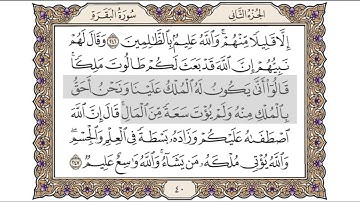 الجزء الثاني
سورة البقرة
إِلَّا قَلِيلًا مِّنْهُمْ ۗ وَاللَّهُ عَلِيمٌ بِالظَّالِمِينَ ﴿٢٤٦﴾ وَقَالَ لَهُمْ
نَبِيُّهُمْ إِنَّ اللَّهَ قَدْ بَعَثَ لَكُمْ طَالُوتَ مَلِكًا ۚ
قَالُوا أَنَّىٰ يَكُونُ لَهُ الْمُلْكُ عَلَيْنَا وَنَحْنُ أَحَقُّ
بِالْمُلْكِ مِنْهُ وَلَمْ يُؤْتَ سَعَةً مِّنَ الْمَالِ ۚ قَالَ إِنَّ اللَّهَ
اصْطَفَاهُ عَلَيْكُمْ وَزَادَهُ بَسْطَةً فِي الْعِلْمِ وَالْجِسْمِ ۖ
وَاللَّهُ يُؤْتِي مُلْكَهُ مَن يَشَاءُ ۚ وَاللَّهُ وَاسِعٌ عَلِيمٌ ﴿٢٤٧﴾
٤٠